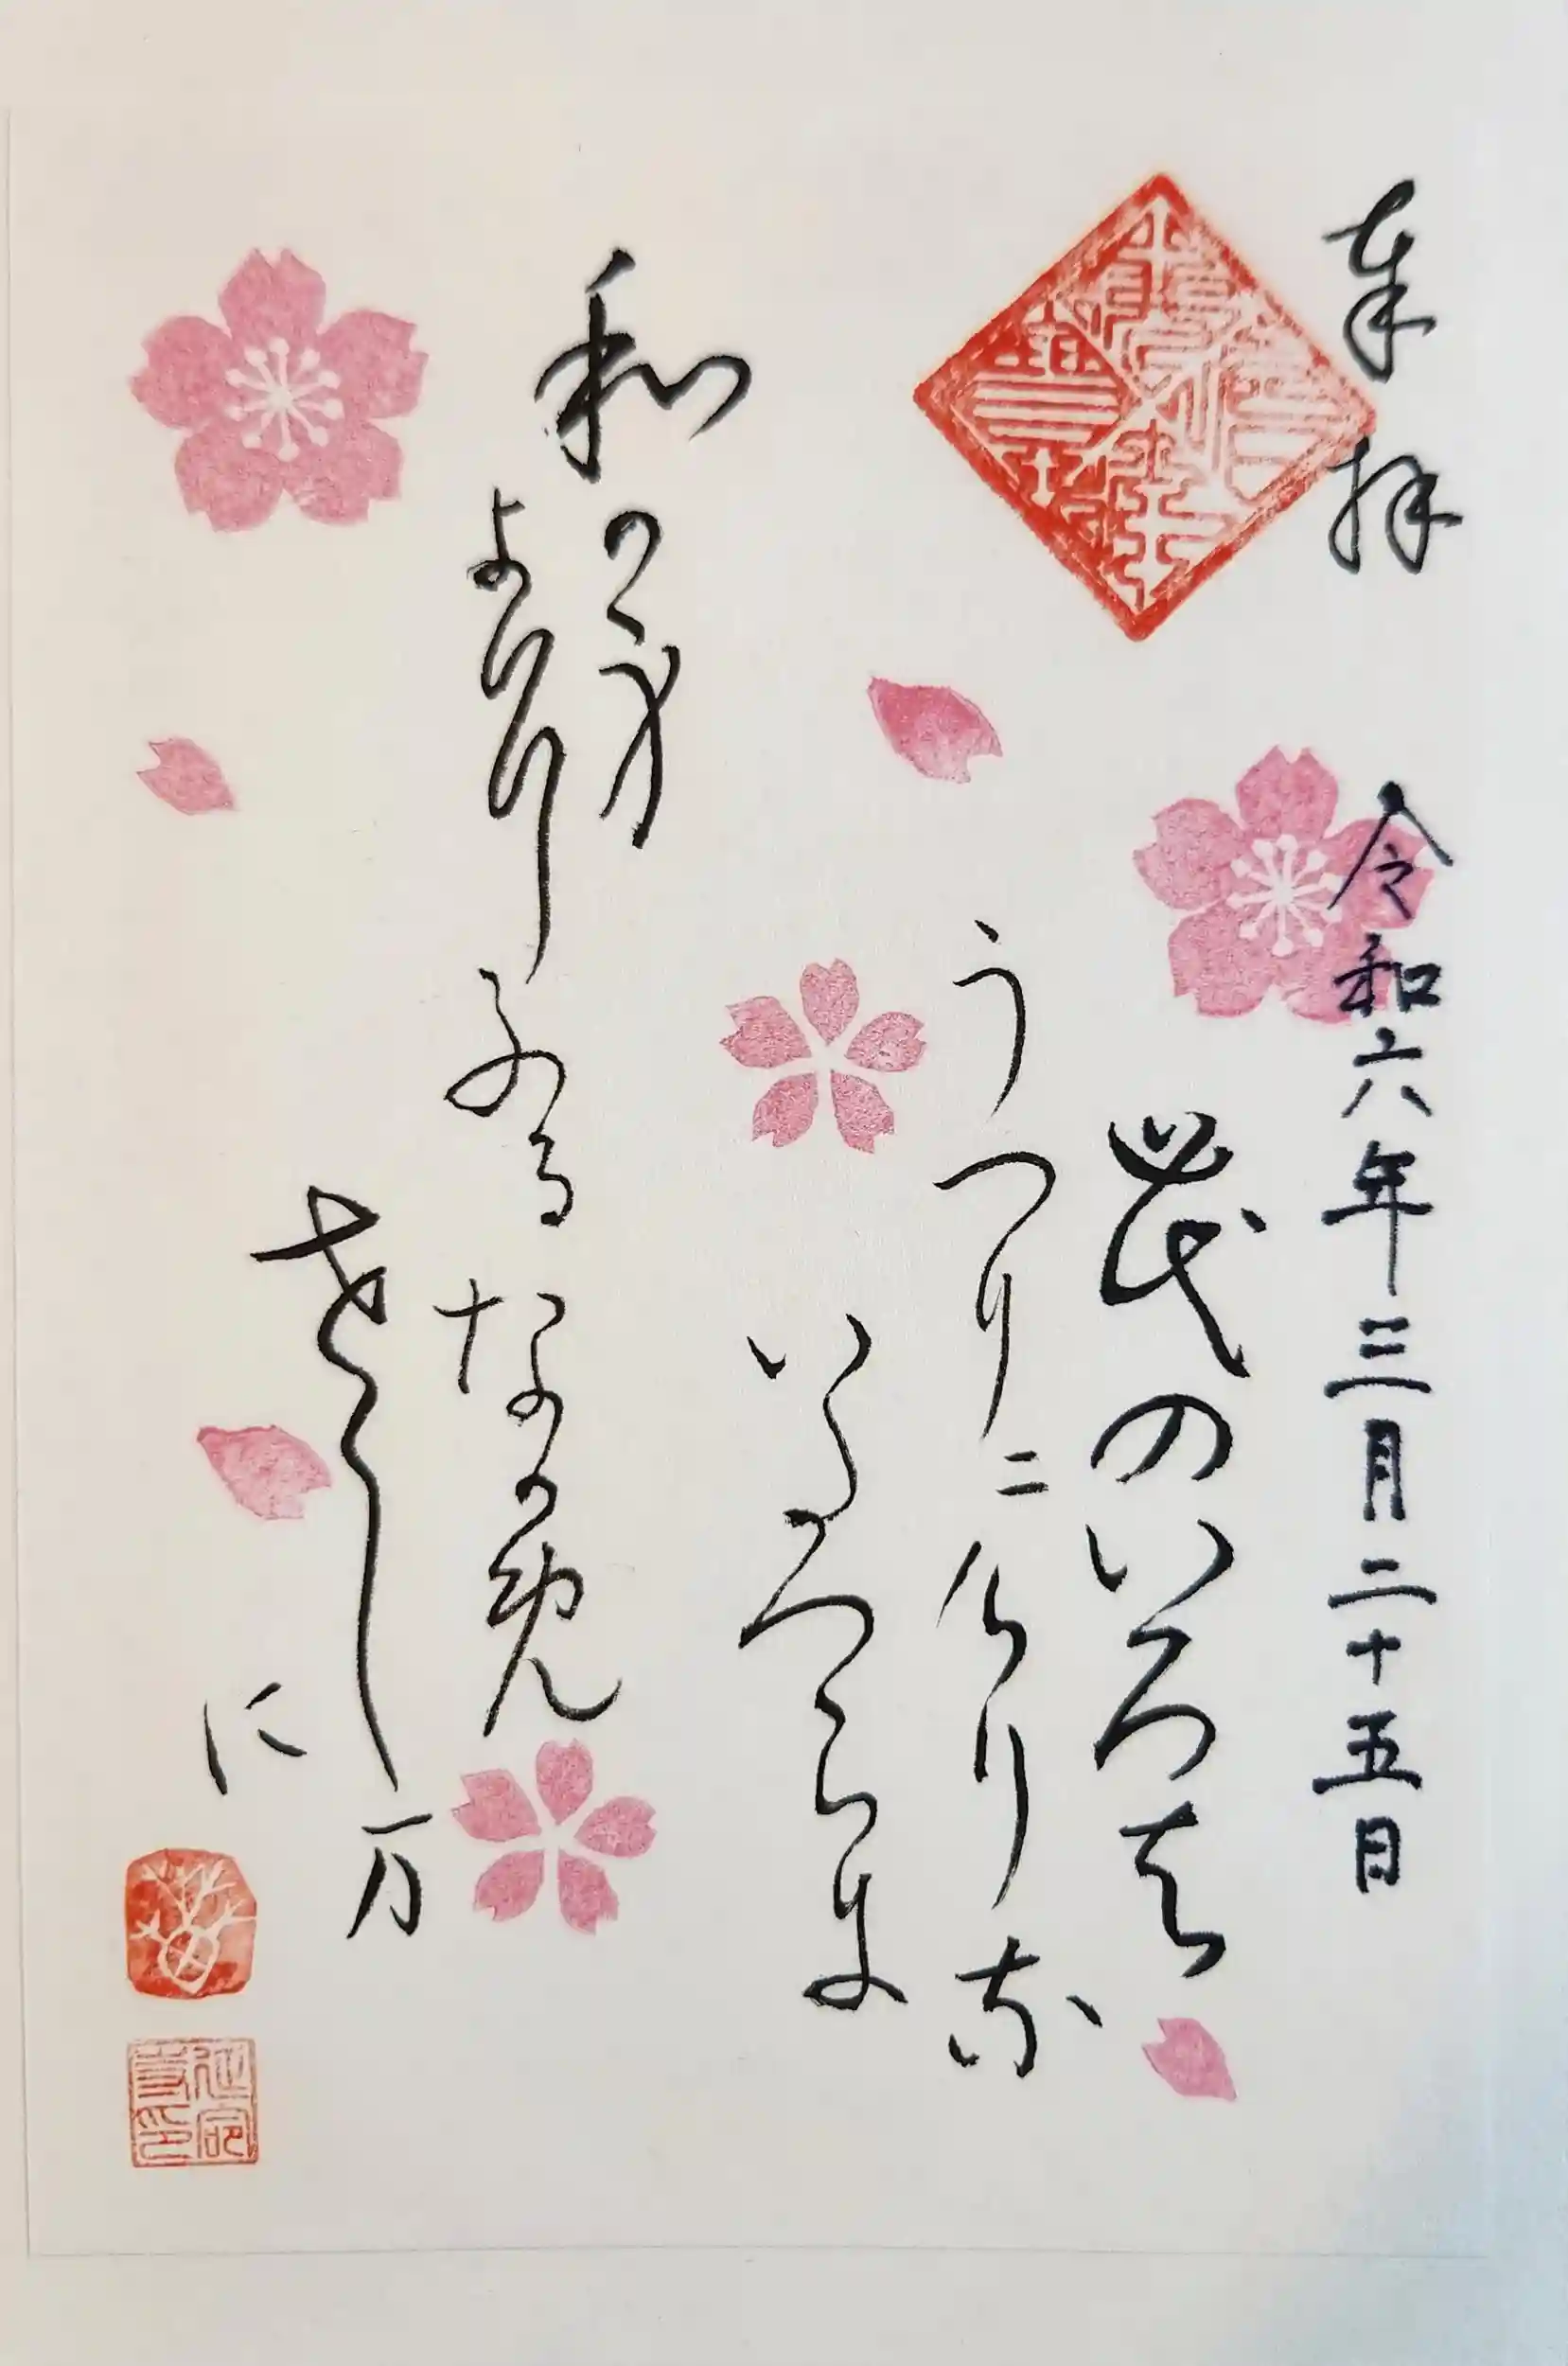 奉拝　令和六年三月二十五日
花のいろは
うつりニけりな
いたつらに
和か身
よにふるなか免
せし万
に